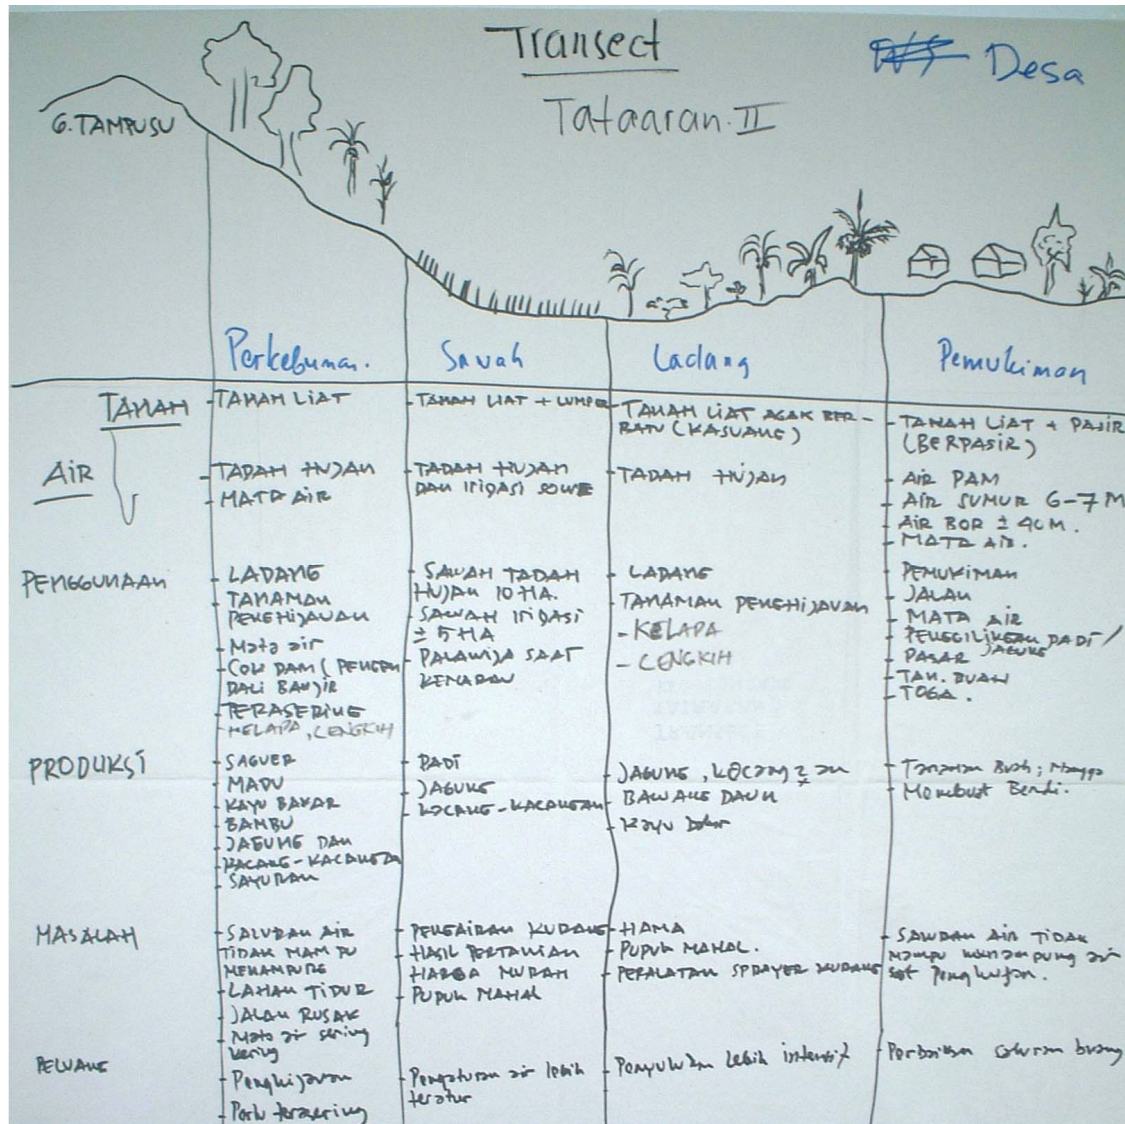 Transect
Desa
Tataaran. II
G. TAMPUSU
Perkebunan.
Sawah
Ladang
Pemukiman
TANAH
- TANAH LIAT
- TANAH LIAT + LUMPER
- TANAH LIAT AGAK BER-
BATU (KASUANG)
- TANAH LIAT + PASIR
(BERPASIR)
AIR
- TADAH HUJAN
- MATA AIR
- TADAH HUJAN
DAN IRIGASI
- TADAH HUJAN
- AIR PAM
- AIR SUMUR 6-7 M
- AIR BOR ±
- MATA AIR.
PENGGUNAAN
- LADANG
- TANAMAN
PENGHIJAUAN
- Mata air
- COK DAM (PENGEN
DALI BANJIR
- TERASERING
- KELAPA, CENGKIH
- SAWAH TADAH
HUJAN 10 HA.
- SAWAH IRIGASI
± 5 HA
- PALAWIJA SAAT
KEMARAU
- LADANG
- TANAMAN PENGHIJAUAN
- KELAPA
- CENGKIH
- PEMUKIMAN
- JALAN
- MATA AIR
- PENGGILINGAN PADI/
JAGUNG
- PASAR
- TAN. BUAH
- TOGA.
PRODUKSI
- SAGUER
- MADU
- KAYU BAKAR
- BAMBU
- JAGUNG DAN
- KACANG-KACANGAN
- SAYURAN
- PADI
- JAGUNG
- KACANG-KACANGAN
- JAGUNG, KACANG2an
- BAWANG DAUN
- Kayu bakar
- Tanaman Buah; Mangga
- Membuat Bendi.
MASALAH
- SALURAN AIR
TIDAK MAMPU
MENAMPUNG
- LAHAN TIDUR
- JALAN RUSAK
- Mata air sering
kering
- PENGAIRAN KURANG
- HASIL PERTANIAN
HARGA MURAH
- PUPUK MAHAL
- HAMA
- PUPUK MAHAL.
- PERALATAN SPRAYER KURANG
- SALURAN AIR TIDAK
mampu menampung air
saat penghujan.
PELUANG
- Penghijauan
- Perlu terasering
- Pengaturan air lebih
teratur
- Penyuluhan lebih intensif
- Perbaikan saluran buang